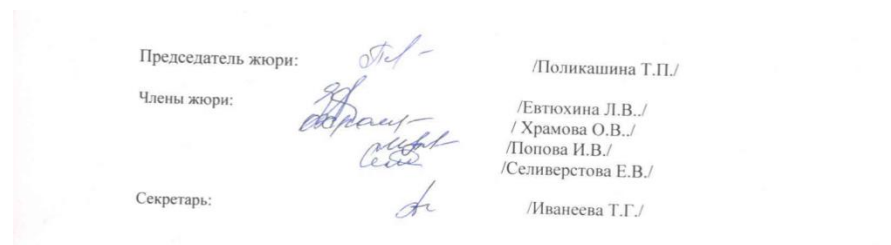 Председатель жюри: /Поликашина Т.П./
Члены жюри: /Евтюхина Л.В../
/ Храмова О.В../
/Попова И.В./
/Селиверстова Е.В./
Секретарь: /Иванеева Т.Г./